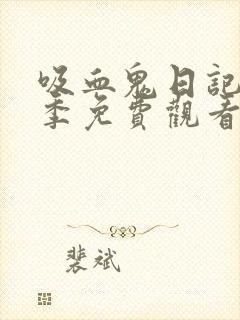 吸血鬼日記
季免費觀看
裴斌